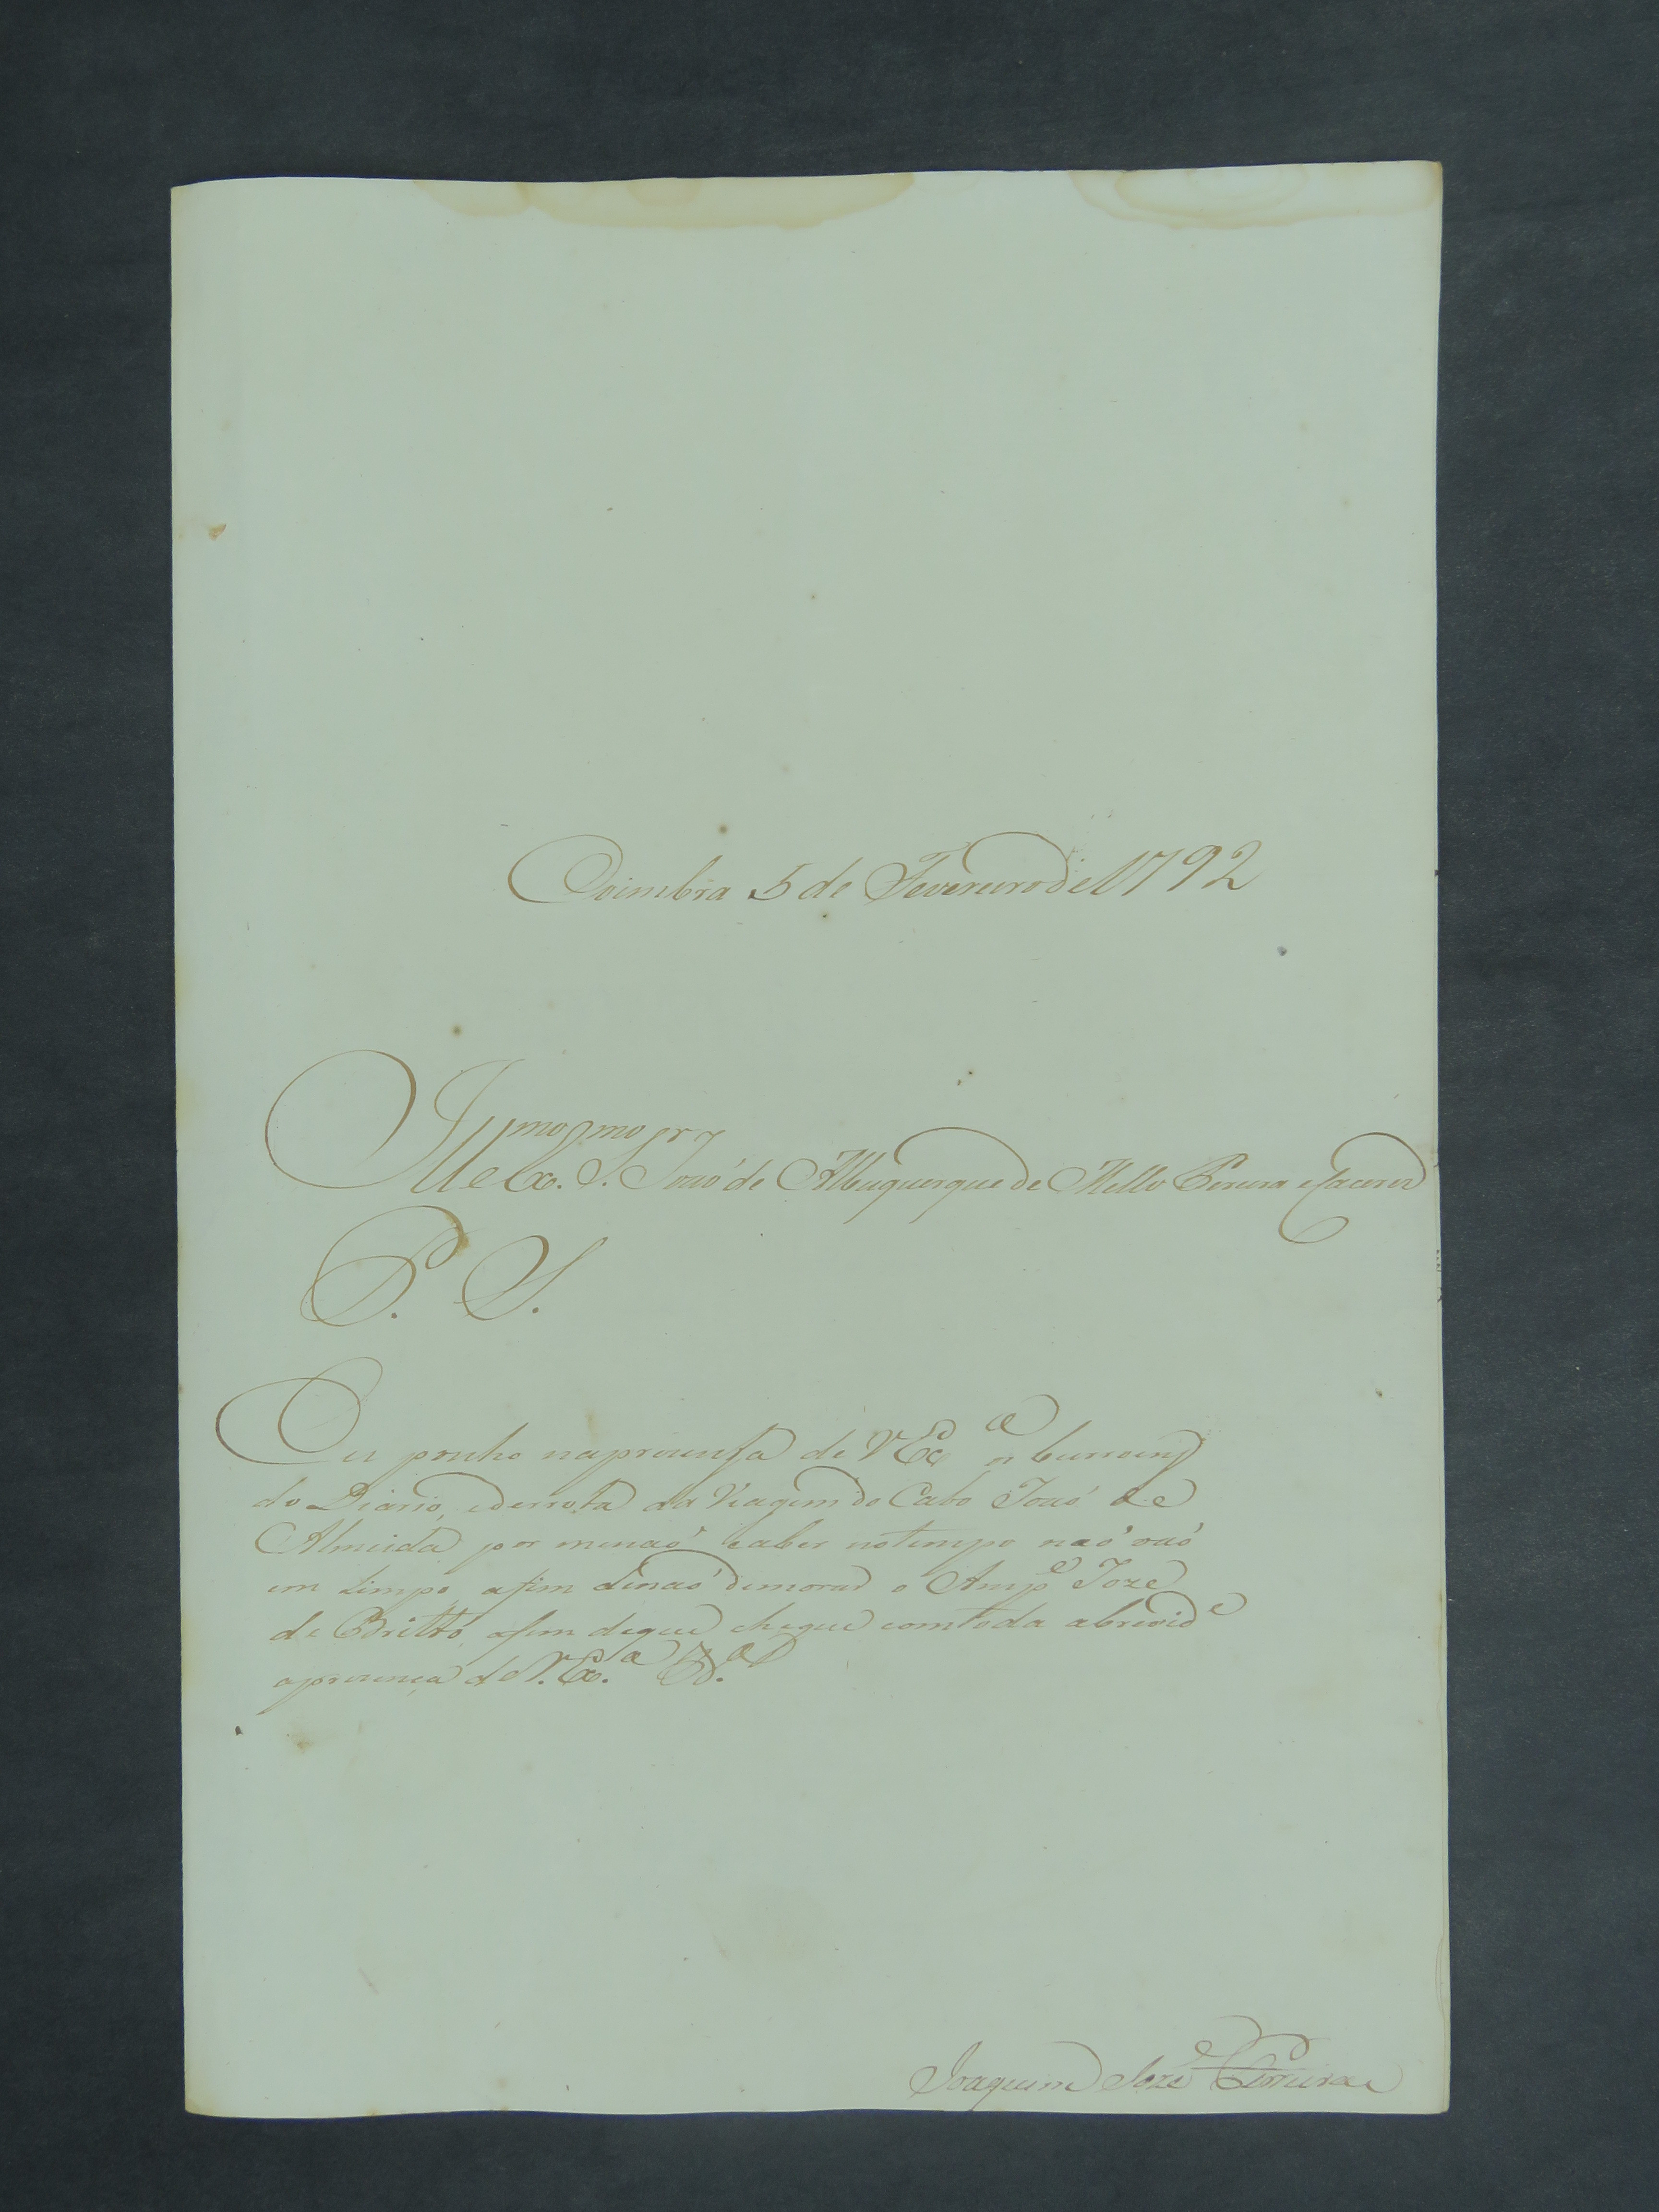 Coimbra 5 de Fevereiro de 1792
Illmo e Exmo Sr. João de Albuquerque de Mello Pereira e Caceres
P. S.
Eu ponho naprezensa de VExa os burroens
do Diario, e derrota da Viagem do Cabo João de
Almeida por menaõ caber notempo naõ vaõ
em Limpo, afim denaõ demorar o Anspe Joze
de Britto, afim deque chegue comtoda abrevide
aprezença de V. Exa.
Joaquim Joze Ferreira